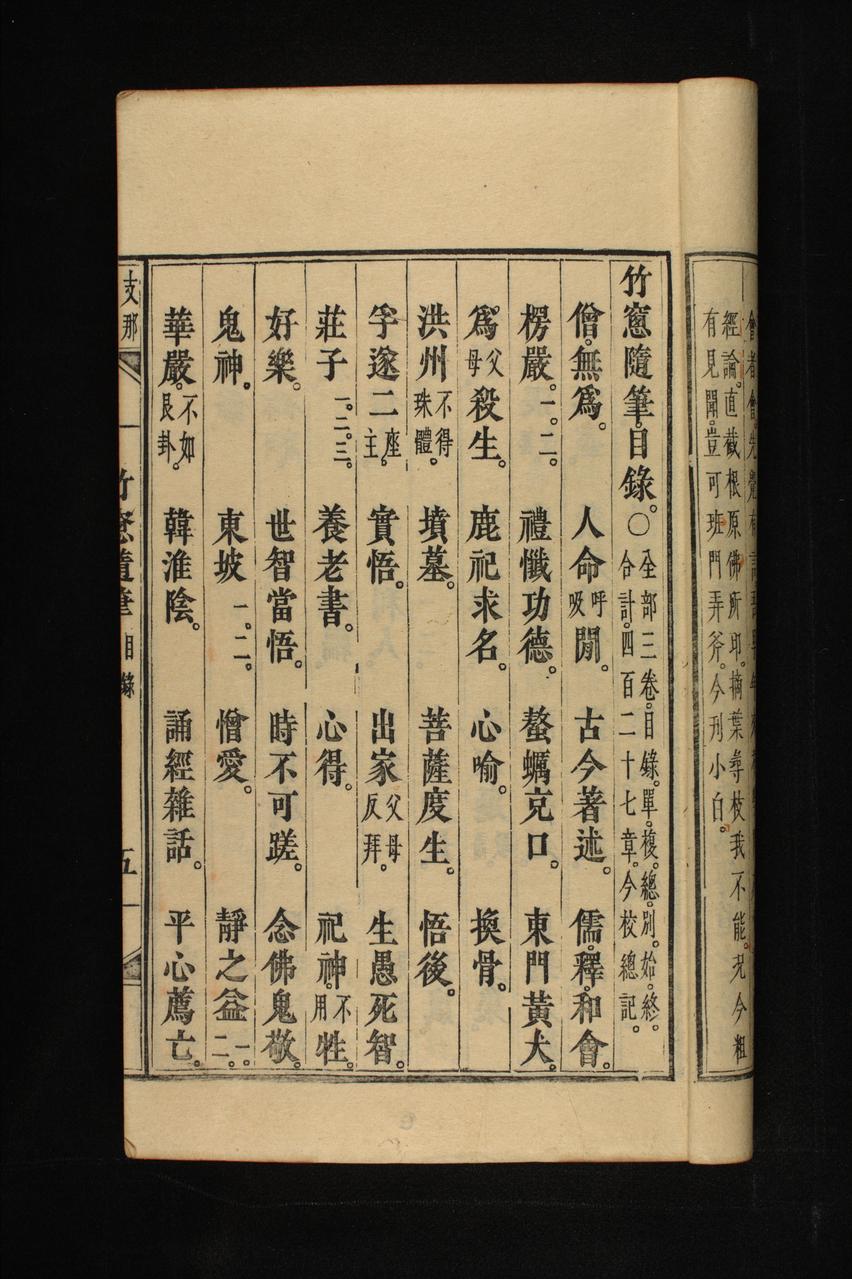 經論。直截根原佛所印。摘葉尋枝我不能。況今粗
有見聞。豈可班門弄斧。今刋小白。
竹窻隨筆目錄。〇全部三卷。目錄。單。複。總。別。始。終。
合計。四百二十七章。今校總記。
僧。無爲。 人命呼吸閒。 古今著述。 儒。釋。和會。
楞嚴。一。二。 禮懺功德。 螯蠣克口。 東門黃犬。
爲父母殺生。 鹿祀求名。 心喻。 換骨。
洪州不得珠體。 墳墓。 菩薩度生。 悟後。
孚遂二座主。 實悟。 出家父母反拜。 生愚死智。
莊子一。二。三。 養老書。 心得。 祀神。不用牲。
好樂。 世智當悟。 時不可蹉。 念佛鬼敬。
鬼神。 東坡一。二。 憎愛。 靜之益一。二。
華嚴。不如艮卦。 韓淮陰。 誦經雜話。 平心薦亡。
支那 竹窻隨筆 目錄 五